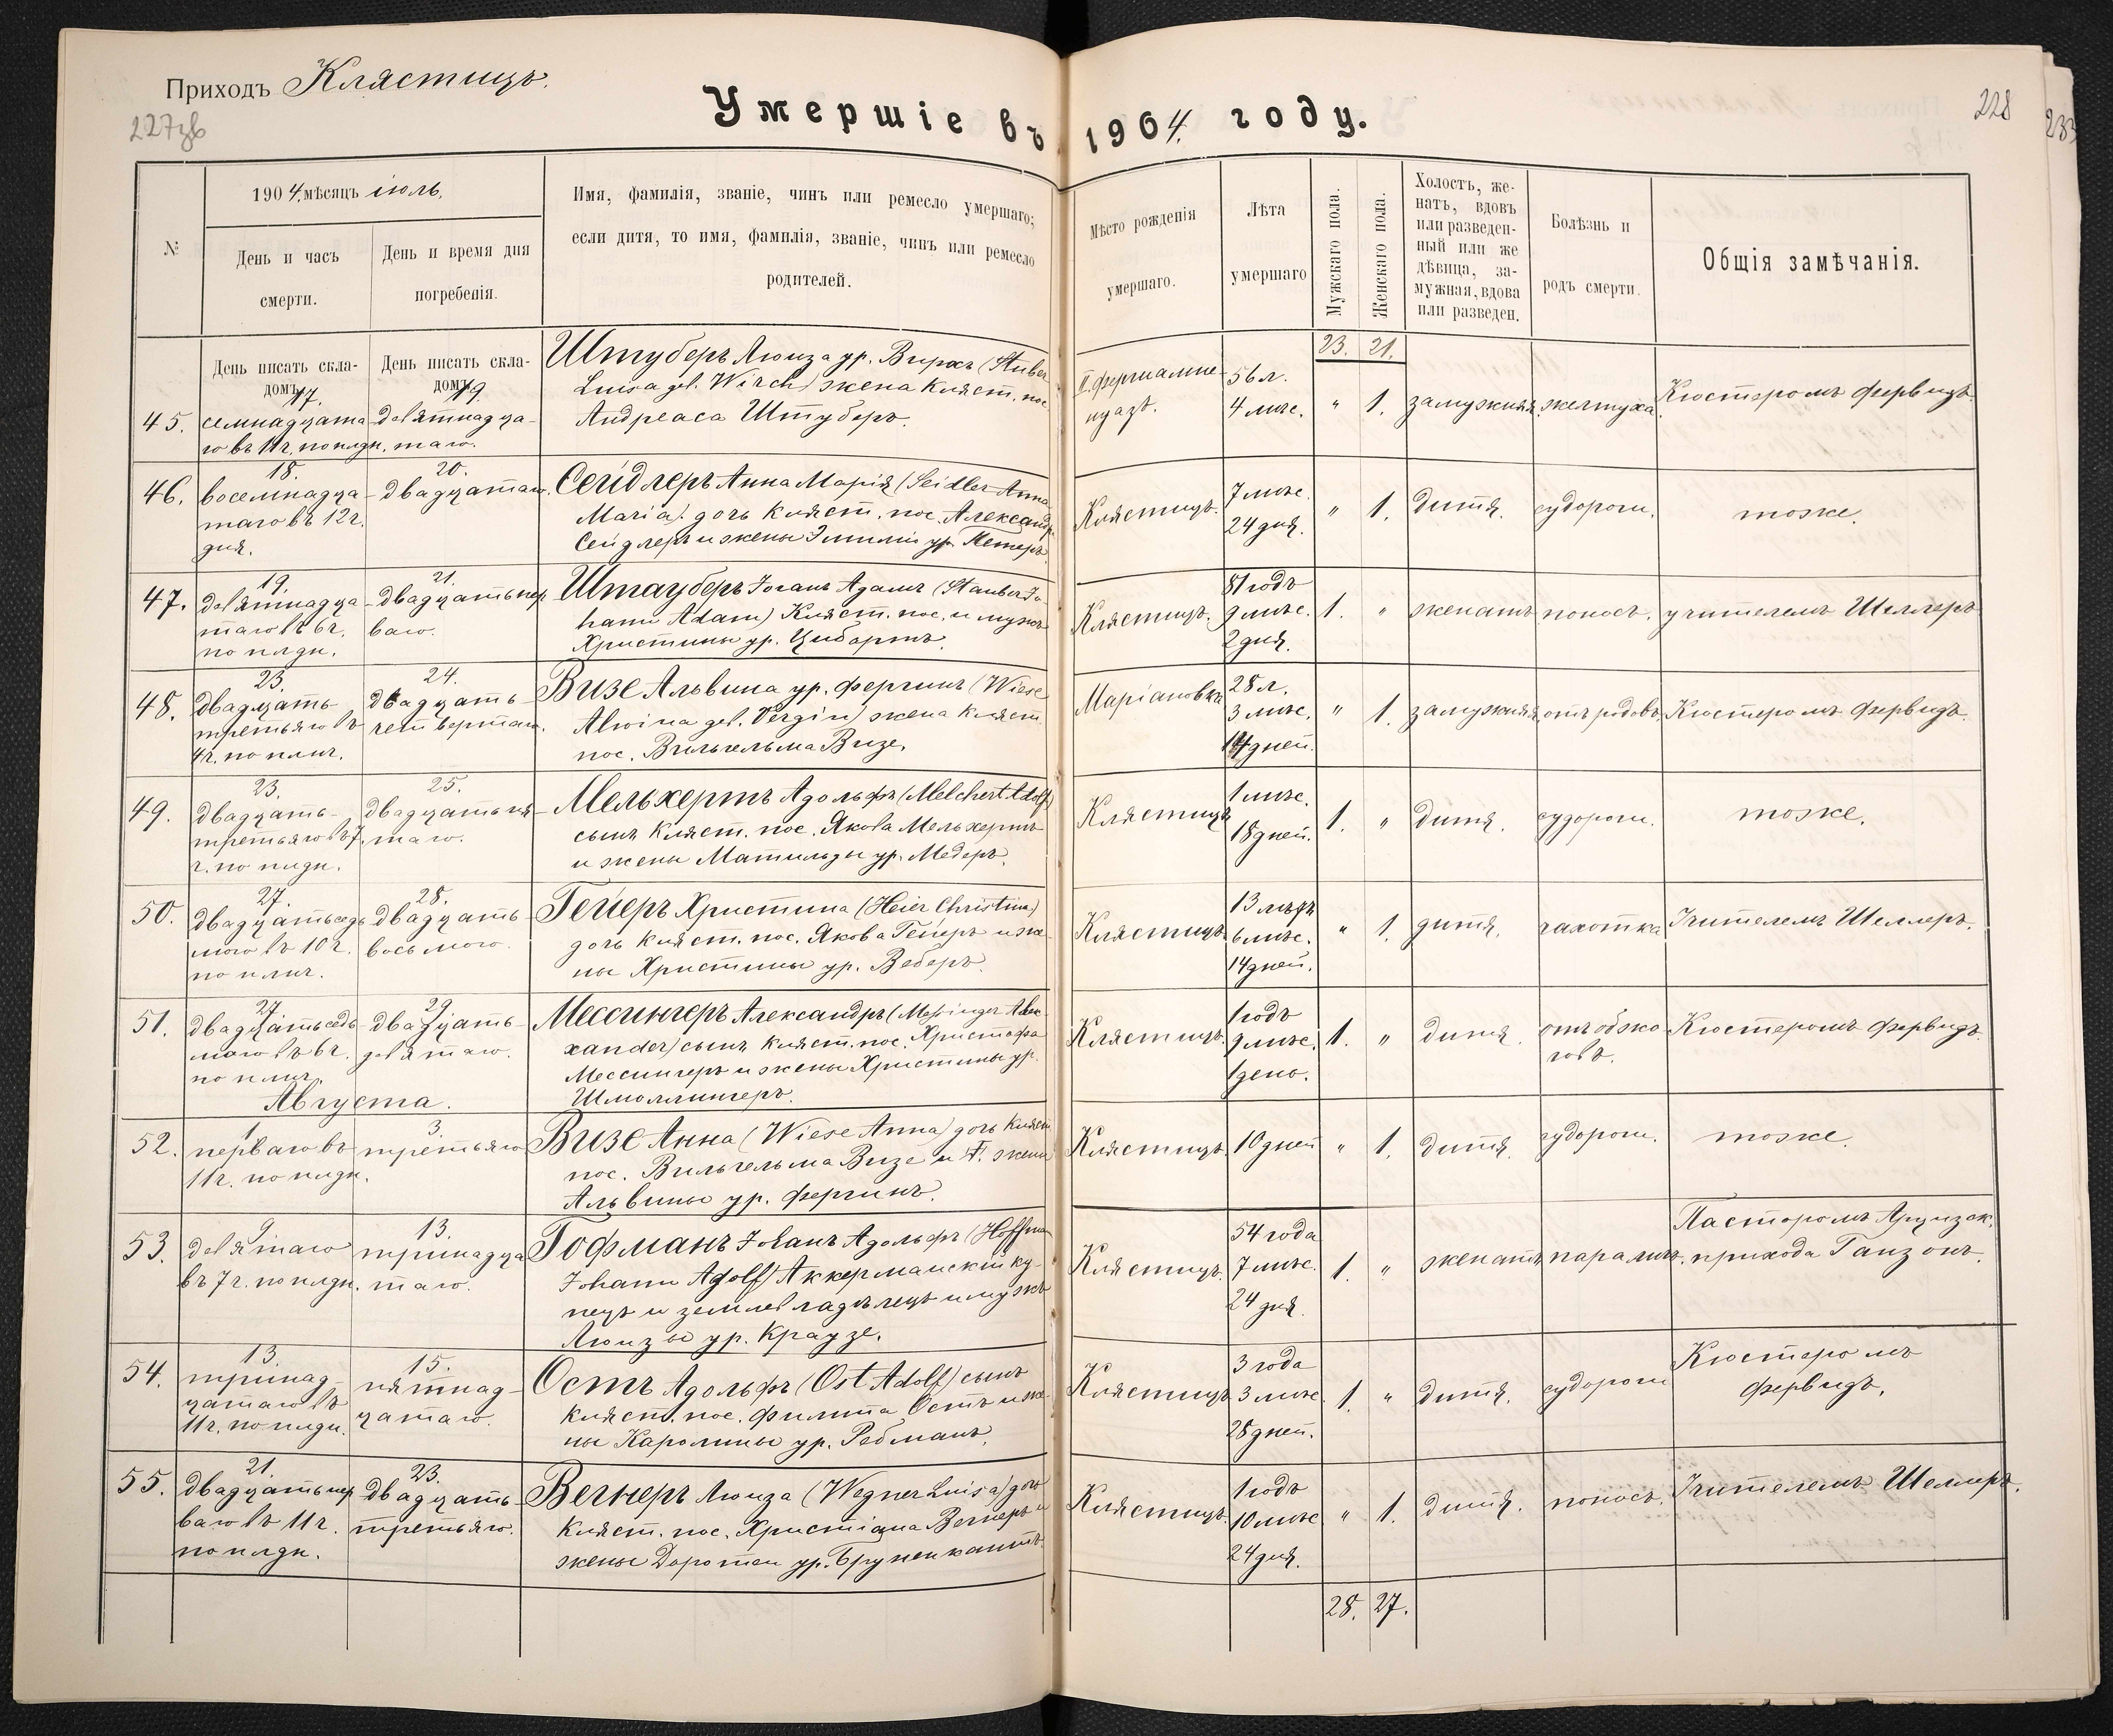 Приходъ Клястицъ.
227зв
228
233
Умершіе въ 1904. году.
№
1904. мѣсяцъ іюль.
День и часъ
смерти.
День и время дня
погребенія.
Имя, фамилія, званіе, чинъ или ремесло умершаго;
если дитя, то имя, фамилія, званіе, чинъ или ремесло
родителей.
Мѣсто рожденія
умершаго.
Лѣта
умершаго
Мужскаго пола.
Женскаго пола.
Холостъ, же-
натъ, вдовъ
или разведен-
ный или же
дѣвица, за-
мужная, вдова
или разведен.
Болѣзнь и
родъ смерти.
Общія замѣчанія.
23. 21.
День писать скла-
домъ
День писать скла-
домъ
45.
17.
семнадцата-
го въ 11ч. по плдн.
19.
девятнадца-
таго.
Штуберъ Люиза ур. Вирхъ (Stuber
Luisa geb. Wirch) жена Кляст. пос.
Андреаса Штуберъ.
II. Фершампе-
нуазъ.
56 л.
4 мѣс.
" 1.
замужняя
желтуха.
Кюстеромъ Фервидъ.
46.
18.
восемнадца-
таго въ 12ч.
дня.
20.
двадцатаго.
Сейдлеръ Анна Марія (Seidler Anna
Maria) дочь Кляст. пос. Александра
Сейдлеръ и жены Эмиліи ур. Петеръ.
Клястицъ.
7 мѣс.
24 дня.
" 1.
дитя.
судороги.
тоже.
47.
19.
девятнадца-
таго въ 6ч.
по плдн.
21.
двадцать пер-
ваго.
Штауберъ Іоганъ Адамъ (Stauber Jo-
hann Adam) Кляст. пос. и мужъ
Христины ур. Цибартъ.
Клястицъ.
81 годъ
9 мѣс.
2 дня.
1. "
женатъ
поносъ.
учителемъ Шеллеръ
48.
23.
двадцать
третьяго въ
4ч. по плнч.
24.
двадцать
четвертаго.
Визе Альвина ур. Фергинъ (Wiese
Alwina geb. Vergin) жена Кляст.
пос. Вильгельма Визе.
Маріановка
28 л.
3 мѣс.
14 дней.
" 1.
замужняя
отъ родовъ.
Кюстеромъ Фервидъ.
49.
23.
двадцать-
третьяго въ 7
ч. по плдн.
25.
двадцать пя-
таго.
Мельхертъ Адольфъ (Melchert Adolf)
сынъ Кляст. пос. Якова Мельхертъ
и жены Матильды ур. Медеръ.
Клястицъ
1 мѣс.
18 дней.
1. "
дитя.
судороги.
тоже.
50.
27.
двадцать седь-
мого въ 10ч.
по плнч.
28.
двадцать-
восьмого.
Гейеръ Христина (Heier Christina)
дочь Кляст. пос. Якова Гейеръ и же-
ны Христины ур. Веберъ.
Клястицъ.
13 лѣтъ
6 мѣс.
14 дней.
" 1.
дитя.
чахотка
Учителемъ Шеллеръ.
51.
27.
двадцать седь-
маго въ 6ч.
по плнч.
29.
двадцать-
девятаго.
Мессингеръ Александръ (Messinger Alex-
xander) сынъ Кляст. пос. Христофа
Мессингеръ и жены Христины ур.
Шмоллингеръ.
Клястицъ.
1 годъ
9 мѣс.
1 день.
1. "
дитя.
отъ обжо-
говъ.
Кюстеромъ Фервидъ.
Августа.
52.
1.
перваго въ
11ч. по плдн.
3.
третьяго
Визе Анна (Wiese Anna) дочь Кляст.
пос. Вильгельма Визе и †. жены
Альвины ур. Фергинъ.
Клястицъ.
10 дней
" 1.
дитя.
судороги.
тоже.
53.
9.
девятаго
въ 7ч. по плдн.
13.
тринадца-
таго.
Гофманъ Іоганъ Адольфъ (Hoffman
Johann Adolf) Аккерманскій ку-
пецъ и землевладѣлецъ и мужъ
Люизы ур. Краузе.
Клястицъ.
54 года
7 мѣс.
24 дня.
1. "
женатъ
паралич.
Пасторомъ Арцизск.
прихода Ганзонъ.
54.
13.
тринад-
цатаго въ
11ч. по плдн.
15.
пятнад-
цатаго.
Остъ Адольфъ (Ost Adolf) сынъ
Кляст. пос. Филипа Остъ и же-
ны Каролины ур. Ребманъ.
Клястицъ.
3 года
3 мѣс.
28 дней.
1. "
дитя.
судороги
Кюстеромъ
Фервидъ.
55.
21.
двадцать пер-
ваго въ 11ч.
по плдн.
23.
двадцать-
третьяго.
Вегнеръ Люиза (Wegner Luisa) дочь
Кляст. пос. Христіана Вегнеръ и
жены Доротеи ур. Бруненкантъ.
Клястицъ.
1 годъ
10 мѣс
24 дня.
" 1.
дитя.
поносъ.
Учителемъ Шеллеръ.
28. 27.